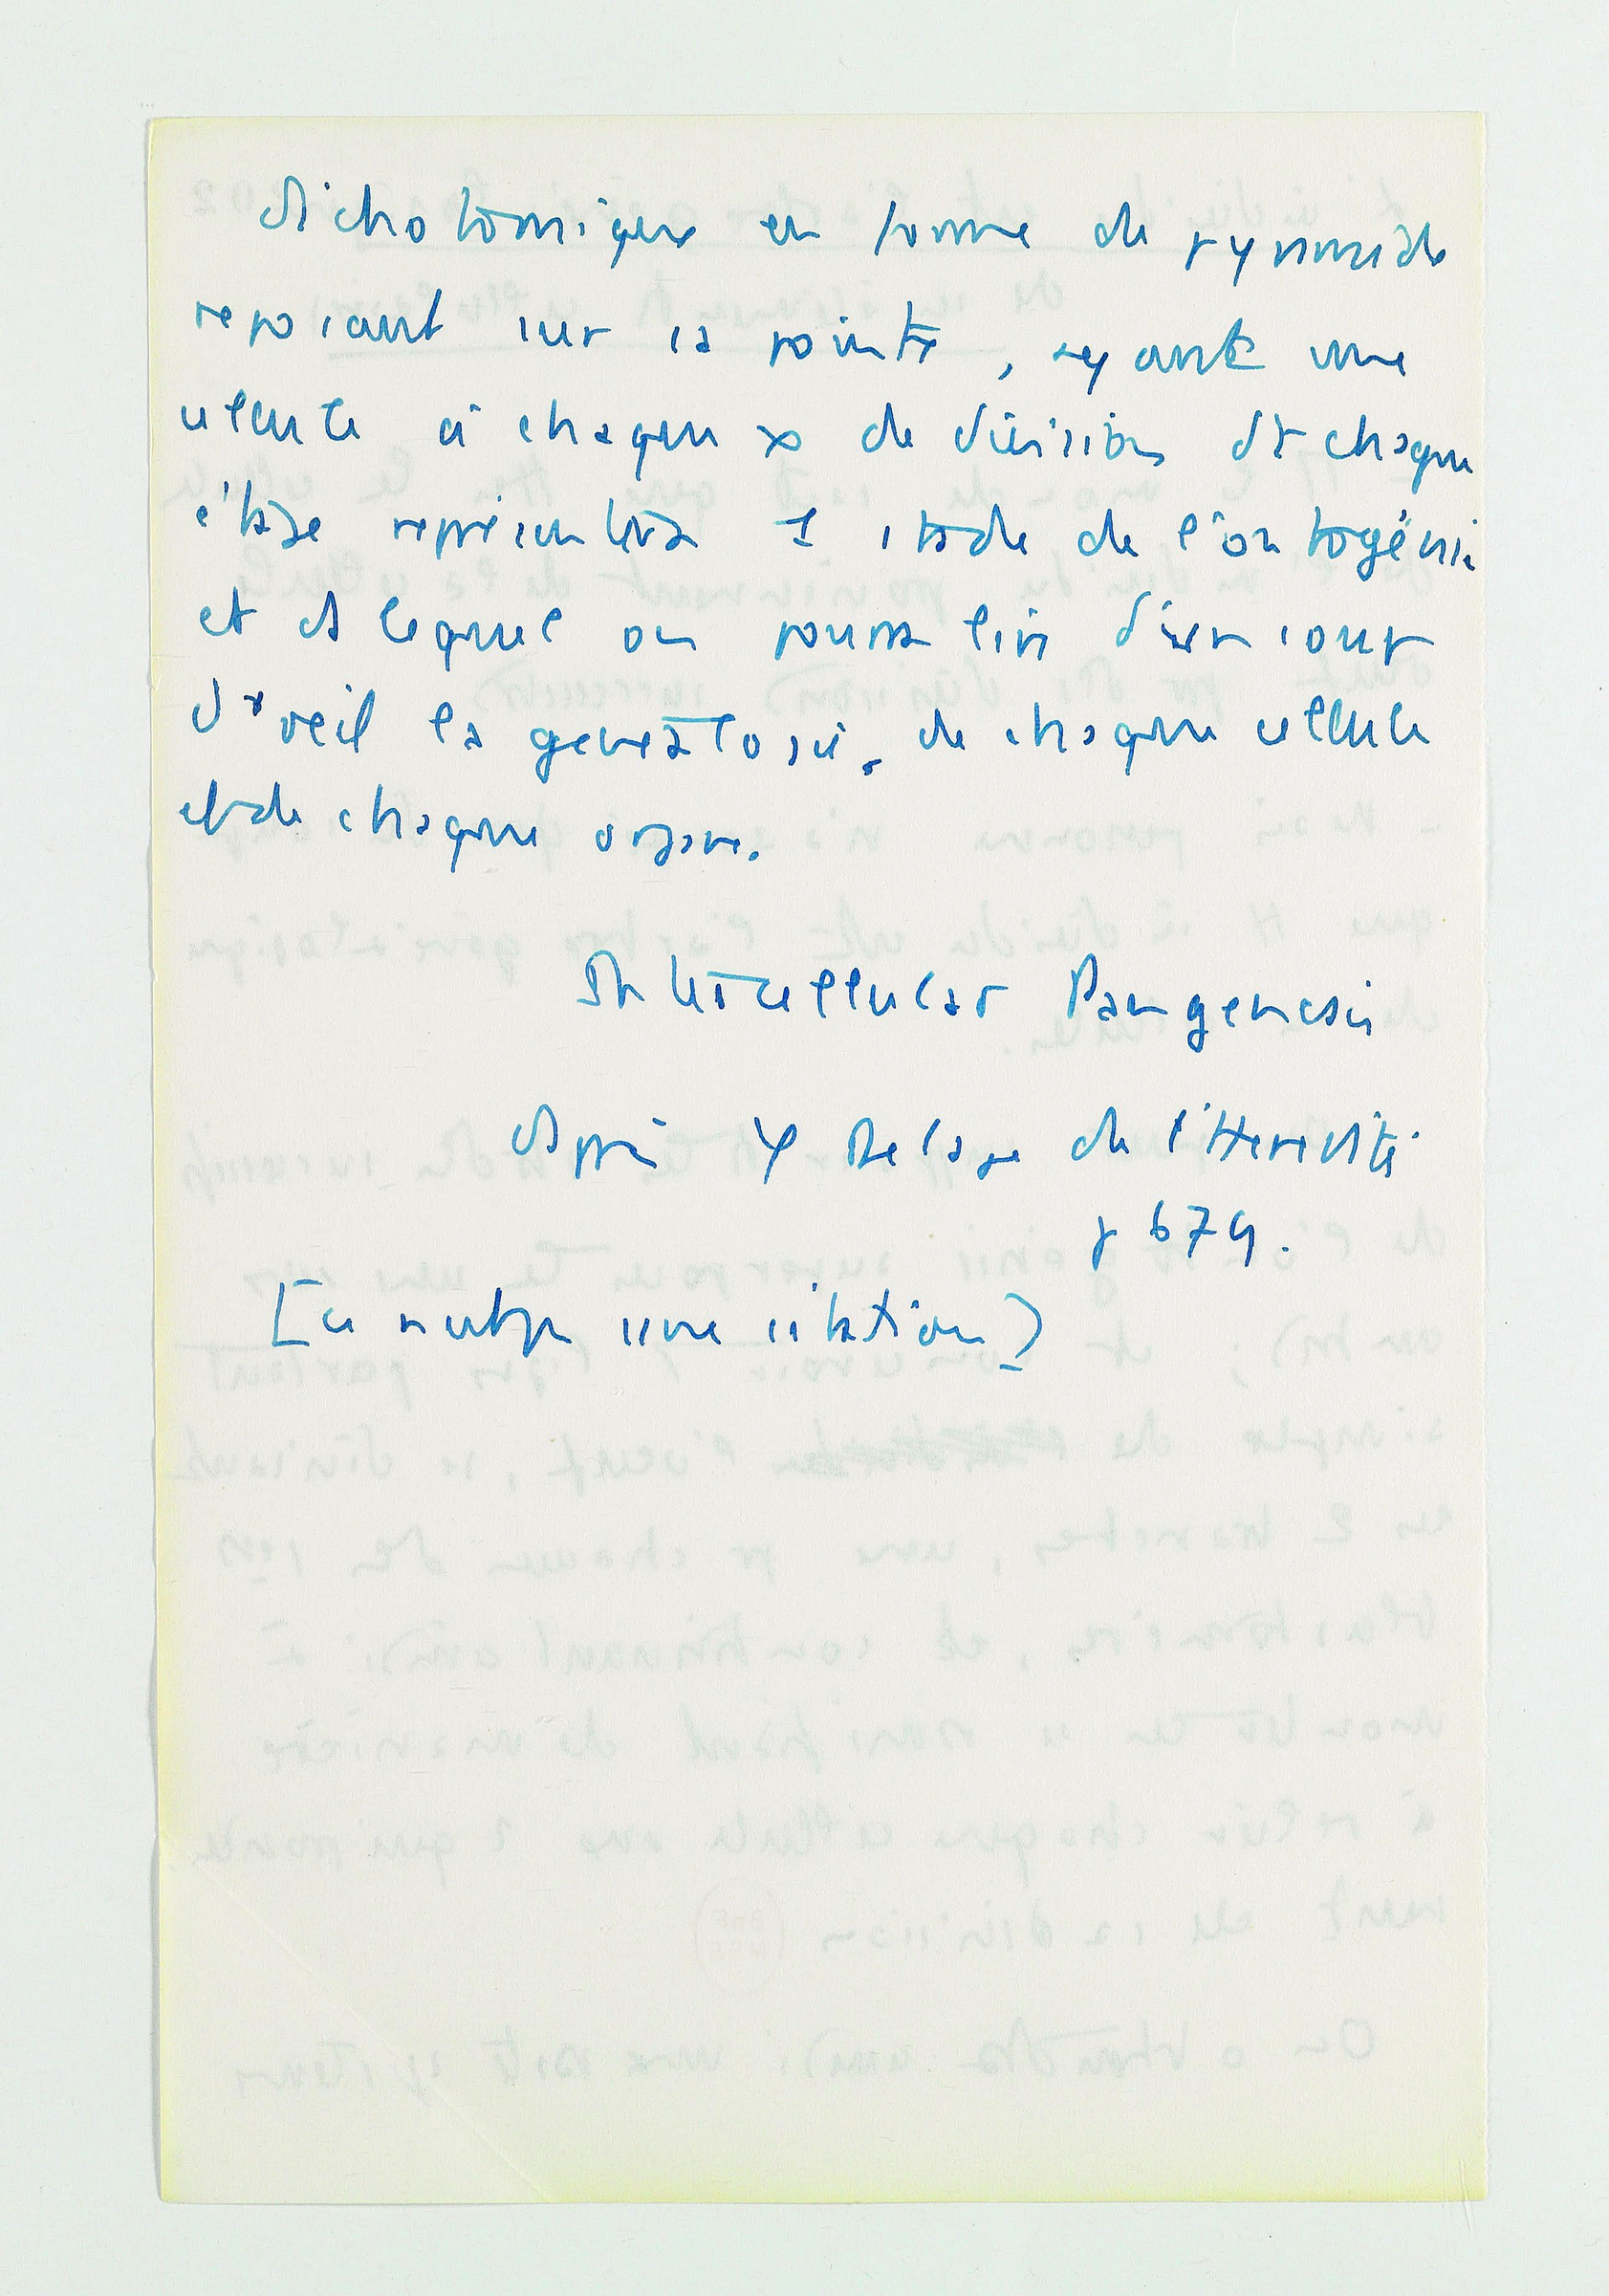 dichotomique en forme de pyramide
reposant sur sa pointe, ayant une
cellule à chaque x de division dt chaque
étage représentera 1 stade de l'ontogénie
et ds lequel on pourra lire d'un coup
d'oeil la généalogie de chaque cellule
et de chaque organe.
Intracellular Pangenesis
d'après Y Delage de l'Heredité
p 674.
[ce n'est pas une citation]